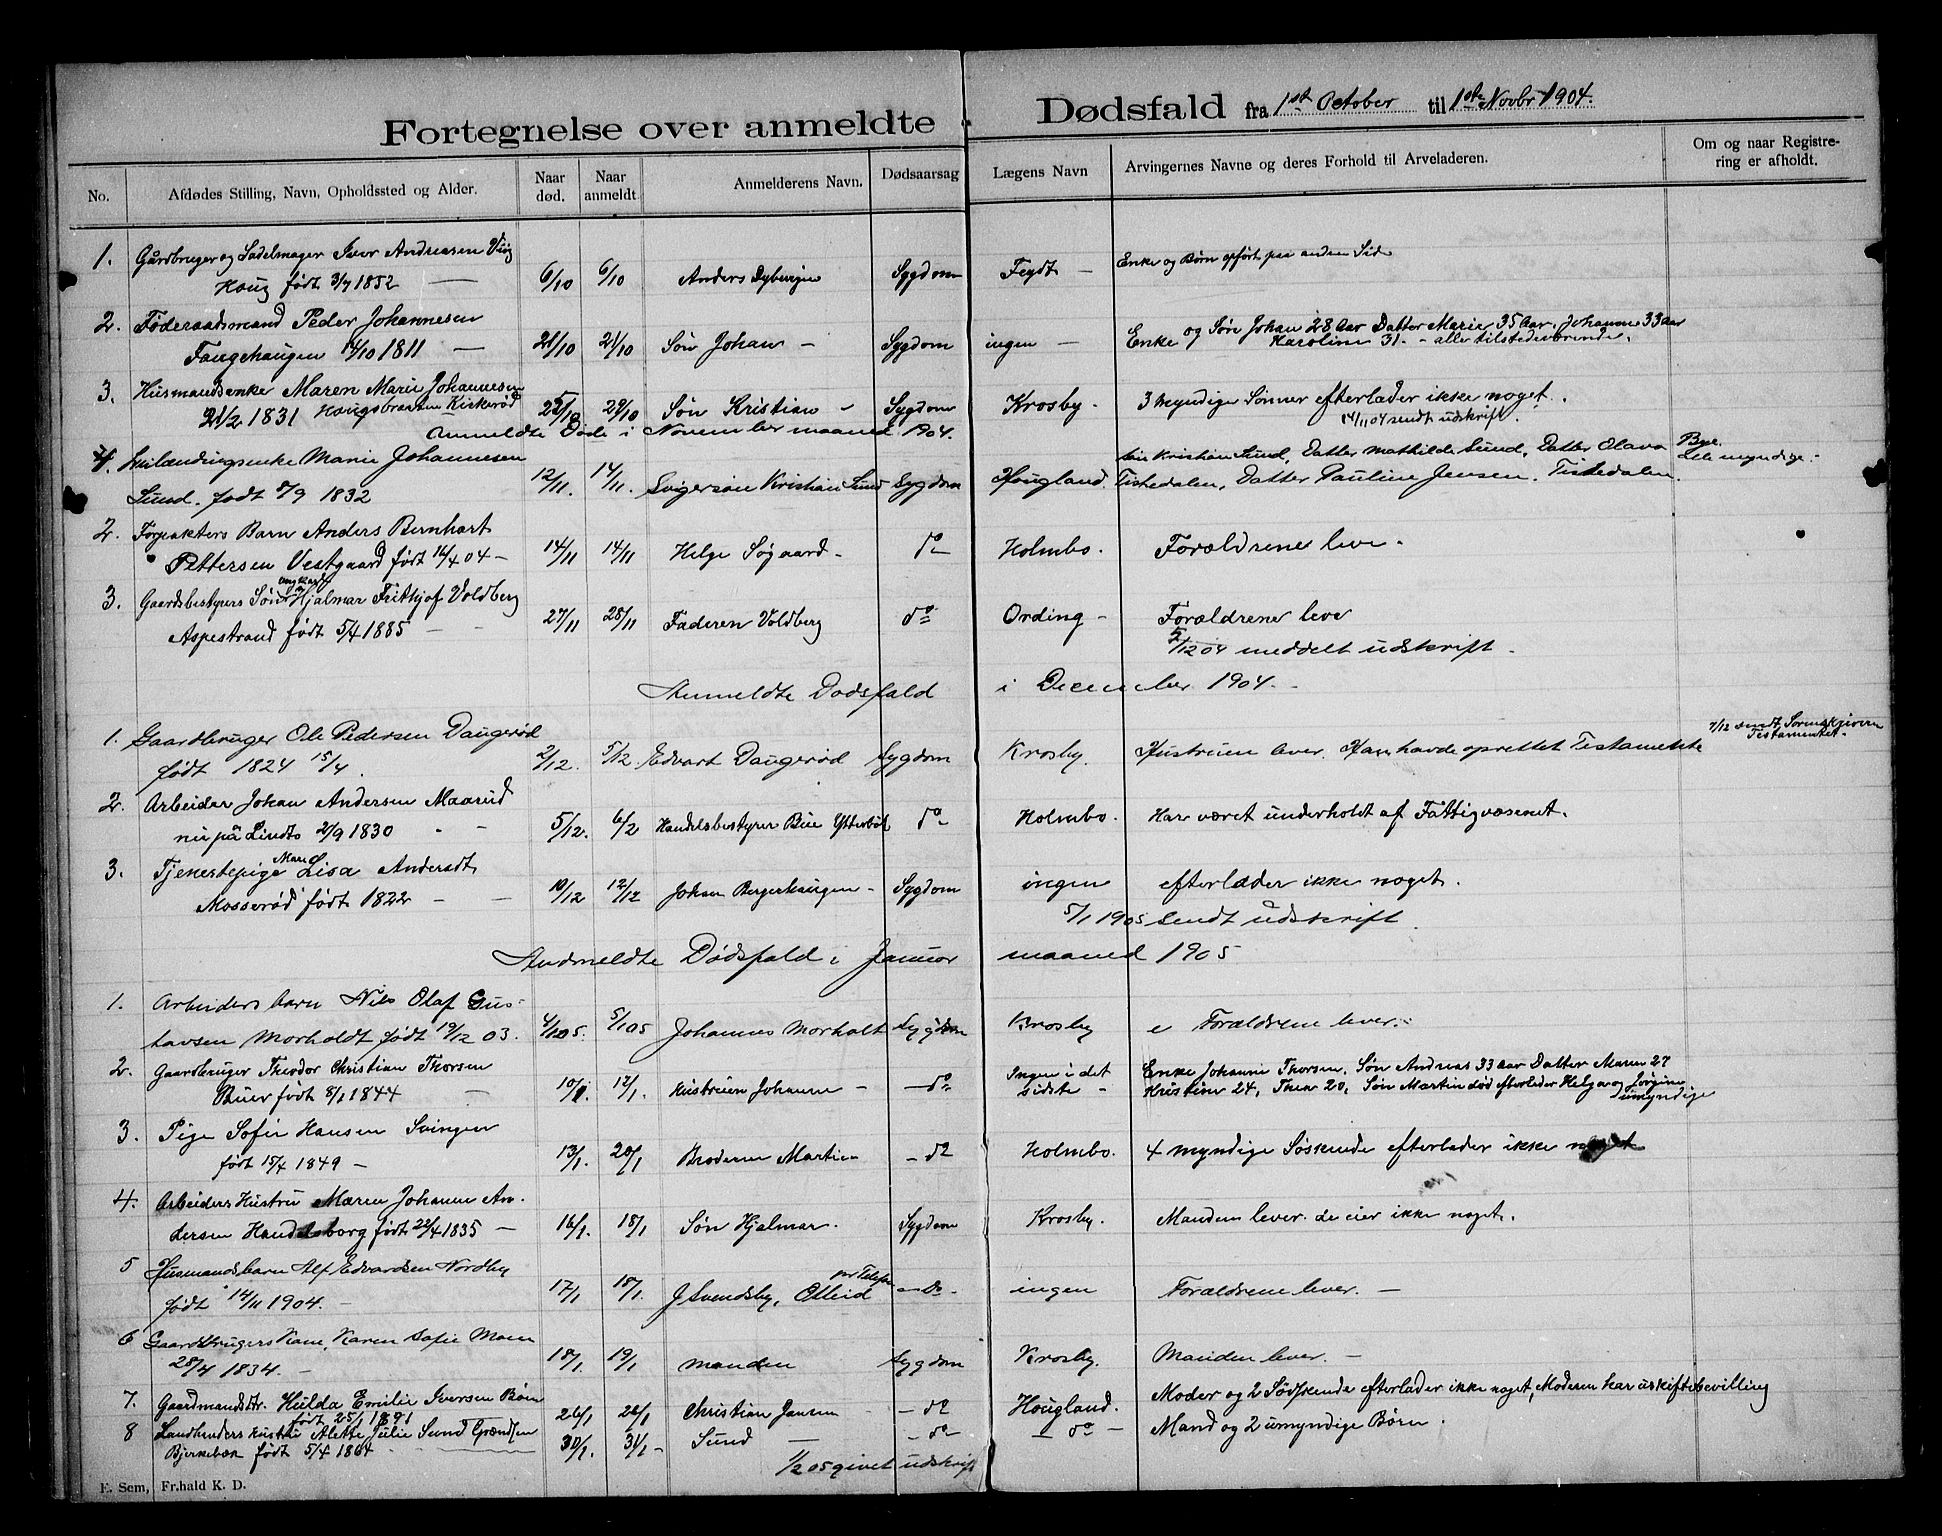 Fortegnelse over anmeldte Dødsfald fra 1st October til 1ste Novbr 1904.
No. Afdødes Stilling, Navn, Opholdssted og Alder. Naar død. Naar anmeldt Anmelderens Navn. Dødsaarsag Lægens Navn Arvingernes Navne og deres Forhold til Arveladeren. Om og naar Registrering er afholdt.
1. Gårdbruger og Sadelmager Iver Andreasen Enke og Børn opført paa anden Side
Haug født 3/7 1852 — 6/10 6/10 Anders Sygdom Feydt —
2. Føderaadsmand Peder Johannesen og Søn Johan 28 Aar Datter Marie 35 Aar, Johanne 33 aar
Fangehaugen 14/10 1811 — 21/10 21/10 Søn Johan — Sygdom ingen — Enke Karoline 31. - alle tilstedeværende.
3. Husmandsenke Maren Marie Johannesen
21/2 1831 Haugsbraaten Kirkerød 25/10 29/10 Søn Kristian — Sygdom Krosby. 3 myndige Sønner efterlader ikke noget.
14/11 04 sendt udskrift.
Anmeldte Døde i November maaned 1904.
1. Marie Johannesen Kristian Sund, Datter Mathilde Sund, Datter Olava
Sund. født 5/9 1832 12/11. 14/11. Svigersøn Kristian Sund Sygdom Hougland. Tistedalen, Datter Pauline Jensen. Tistedalen. myndige.
2. Forpakters Barn Anders Bernhart
Pettersen Vestgaard født 16/4 04 — 14/11 14/11 Helge Søgaard — do Holmbo. Forældrene leve.
3. Gaardsbestyrers Søn ungkarl Hjalmar Frithjof Voldberg
Aspestrand født 5/4 1885 — 27/11 28/11 Faderen Voldberg do Ording — Forældrene leve
5/12 04 meddelt udskrift.
Anmeldte Dødsfald i December 1904. —
1. Gaardbruger Ole Pedersen Daugerød 7/12 sendt Sorenskriveren Testamentet.
født 1824 15/4. 2/12. 5/12 Edvart Daugerød Sygdom Krosby. Hustruen lever. Han havde oprettet Testamente
2. Arbeider Johan Andersen Maarud
født 2/9 1830 5/12. 6/2 Handelsbestyrer Bue do Holmbo. Har været underholdt af Fattigvæsenet.
3. Tjenestepige Mari Lisa Andersdt
Mosserød født 1822 — 10/12 12/12 Johan Bergerhaugen — Sygdom ingen efterlader ikke noget.
5/1 1905 sendt udskrift.
Andmeldte Dødsfald i Januar maaned 1905
1. Arbeiders barn Nils Olaf Gus-
tavsen Morholdt født 19/12 03. 4/1 05. 5/1 05 Johannes Morholt Sygdom Krosby Forældrene lever.
2. Gaardbruger Theodor Christian Thorsen Ingen i det Enke Johanne Thorsen, Søn Andreas 33 aar Datter Maren 27
Buer født 8/1 1844 10/1 12/1. Hustruen Johanne — do sidste — Kristine 24, Thea 20, Søn Martin død efterlader Helga og Jørgine umyndige
3. Pige Sofie Hansen Svingen
født 15/4 1849 — 13/1. 20/1 Broderen Martin — do Holmbo. 4 myndige Søskende efterlader ikke noget
4. Arbeiders Hustru Maren Johanne An-
dersen Handelsborg født 22/4 1835 — 16/1. 18/1 Søn Hjalmar. Sygdom Krosby. Manden lever. de eier ikke noget.
5 Husmandsbarn Alf Edvardsen Nordby
født 14/11 1904. — 17/1 18/1. J. Svendsby, Otteid pr Telefon — do. ingen Forældrene lever. —
6 Gaardbrugers Kone, Karen Sofie Moen
28/4 1834. — 18/1. 19/1 manden Sygdom Krosby. Manden lever. —
7. Gaardmandsdtr. Hulda Emilie Iversen Bøen
født 25/1 1891 26/1 26/1. Christian Jansen — do Hougland. Moder og 2 Sødskende efterlader ikke noget, Moderen har uskiftebevilling
8 Hustru Alette Julie Sund
Bjerkebæk født 5/4 1864 30/1. 31/1 — Sund — — do — — do — Mand og 2 umyndige Børn.
1/2 05 givet udskrift
E. Sem, Fr.hald K. D.